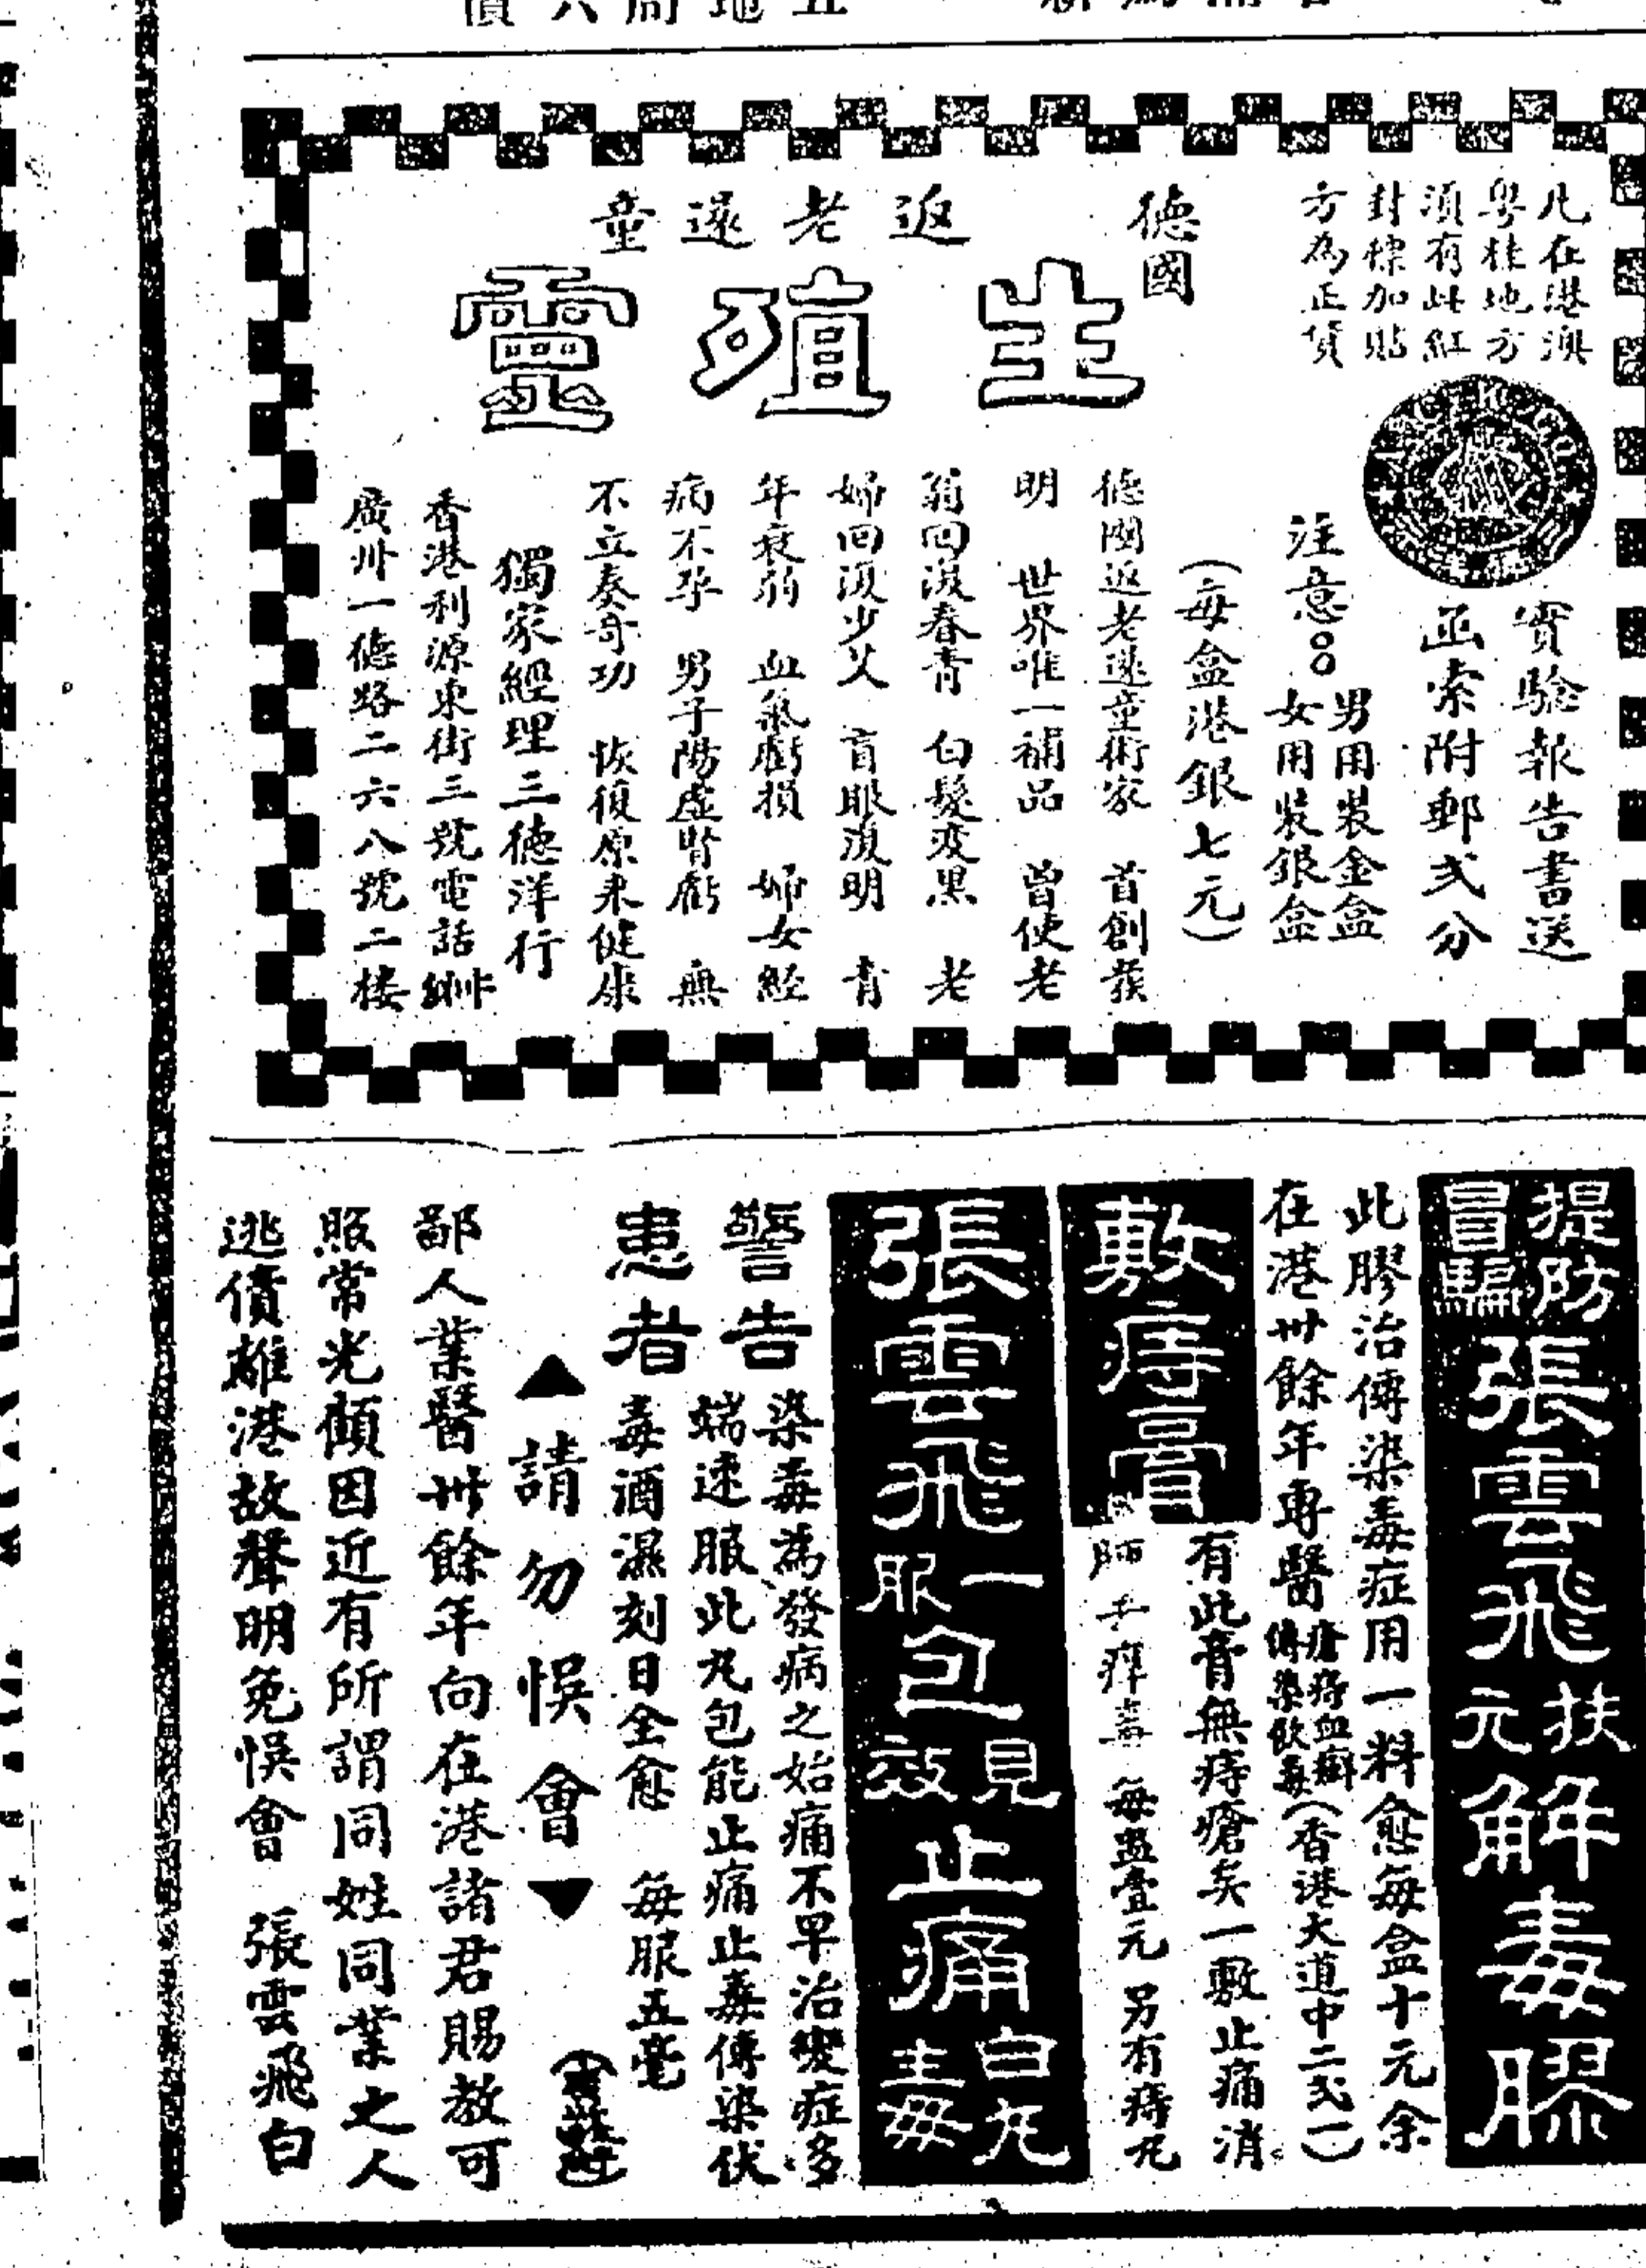 凡在港澳
粤桂地方
須有此紅
封標加貼
方為正貨
實驗報告書送
函索附郵弍分
注意
男用裝金盒
女用裝銀盒
(每盒港銀七元)
德國
返老還童
生殖靈
德國返老還童術家 首創發
明 世界唯一補品 曾使老
翁回復春青 白髮变黑 老
婦回復少艾 盲眼復明 青
年衰弱 血氣虧損 婦女經
病不孕 男子陽虛腎虧 無
不立奏奇功 恢復原来健康
獨家經理三德洋行
香港利源東街三號電話
廣州一德路二六八號二楼
提防
冒騙
張雲飛扶元解毒膠
此膠治傳染毒症用一料愈每盒十元余
在港卅餘年專醫
瘡痔血癬
傳染飲毒
(香港大道中二弍一)
敷痔膏
有此膏無痔瘡矣一敷止痛消
痒毒 每盅壹元 另有痔丸
張雲飛一服包見效止痛白丸
毒
警告
患者
染毒為發病之始痛不早治變症多
端速服此丸包能止痛止毒傳染伏
毒酒濕刻日全愈 每服五毫
▲請勿悞會▼
鄙人業醫卅餘年向在港諸君賜教可
照常光顧因近有所謂同姓同業之人
逃債離港故聲明免悞會 張雲飛白